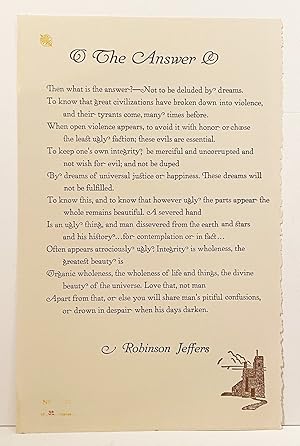 The Answer
Then what is the answer?—Not to be deluded by dreams.
To know that great civilizations have broken down into violence,
and their tyrants come, many times before.
When open violence appears, to avoid it with honor or choose
the least ugly faction; these evils are essential.
To keep one's own integrity, be merciful and uncorrupted and
not wish for evil; and not be duped
By dreams of universal justice or happiness. These dreams will
not be fulfilled.
To know this, and to know that however ugly the parts appear the
whole remains beautiful. A severed hand
Is an ugly thing, and man dissevered from the earth and stars
and his history...for contemplation or in fact...
Often appears atrociously ugly. Integrity is wholeness, the
greatest beauty is
Organic wholeness, the wholeness of life and things, the divine
beauty of the universe. Love that, not man
Apart from that, or else you will share man's pitiful confusions,
or drown in despair when his days darken.
Robinson Jeffers